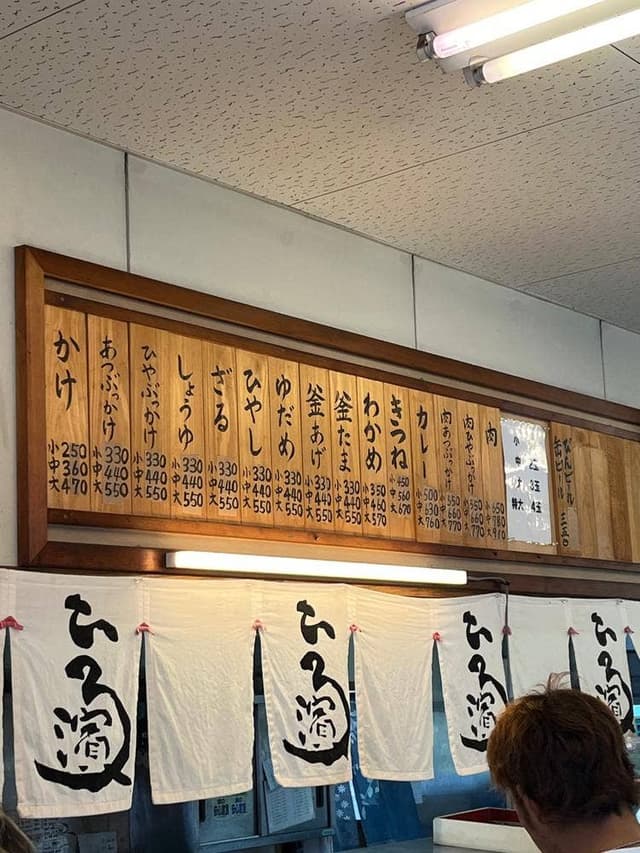 かけ
小 250
中 360
大 470
あつぶっかけ
小 330
中 440
大 550
ひやぶっかけ
小 330
中 440
大 550
しょうゆ
小 330
中 440
大 550
ざる
小 330
中 440
大 550
ひやし
小 330
中 440
大 550
ゆだめ
小 330
中 440
大 550
釜あげ
小 330
中 440
大 550
釜たま
小 330
中 440
大 550
わかめ
小 350
中 460
大 570
きつね
小 450
中 560
大 670
カレー
小 500
中 630
大 760
肉あつぶっかけ
小 550
中 660
大 770
肉ひやぶっかけ
小 550
中 660
大 770
肉
小 650
中 780
大 910
小 2玉
中 3玉
大 4玉
びんビール
缶ビール